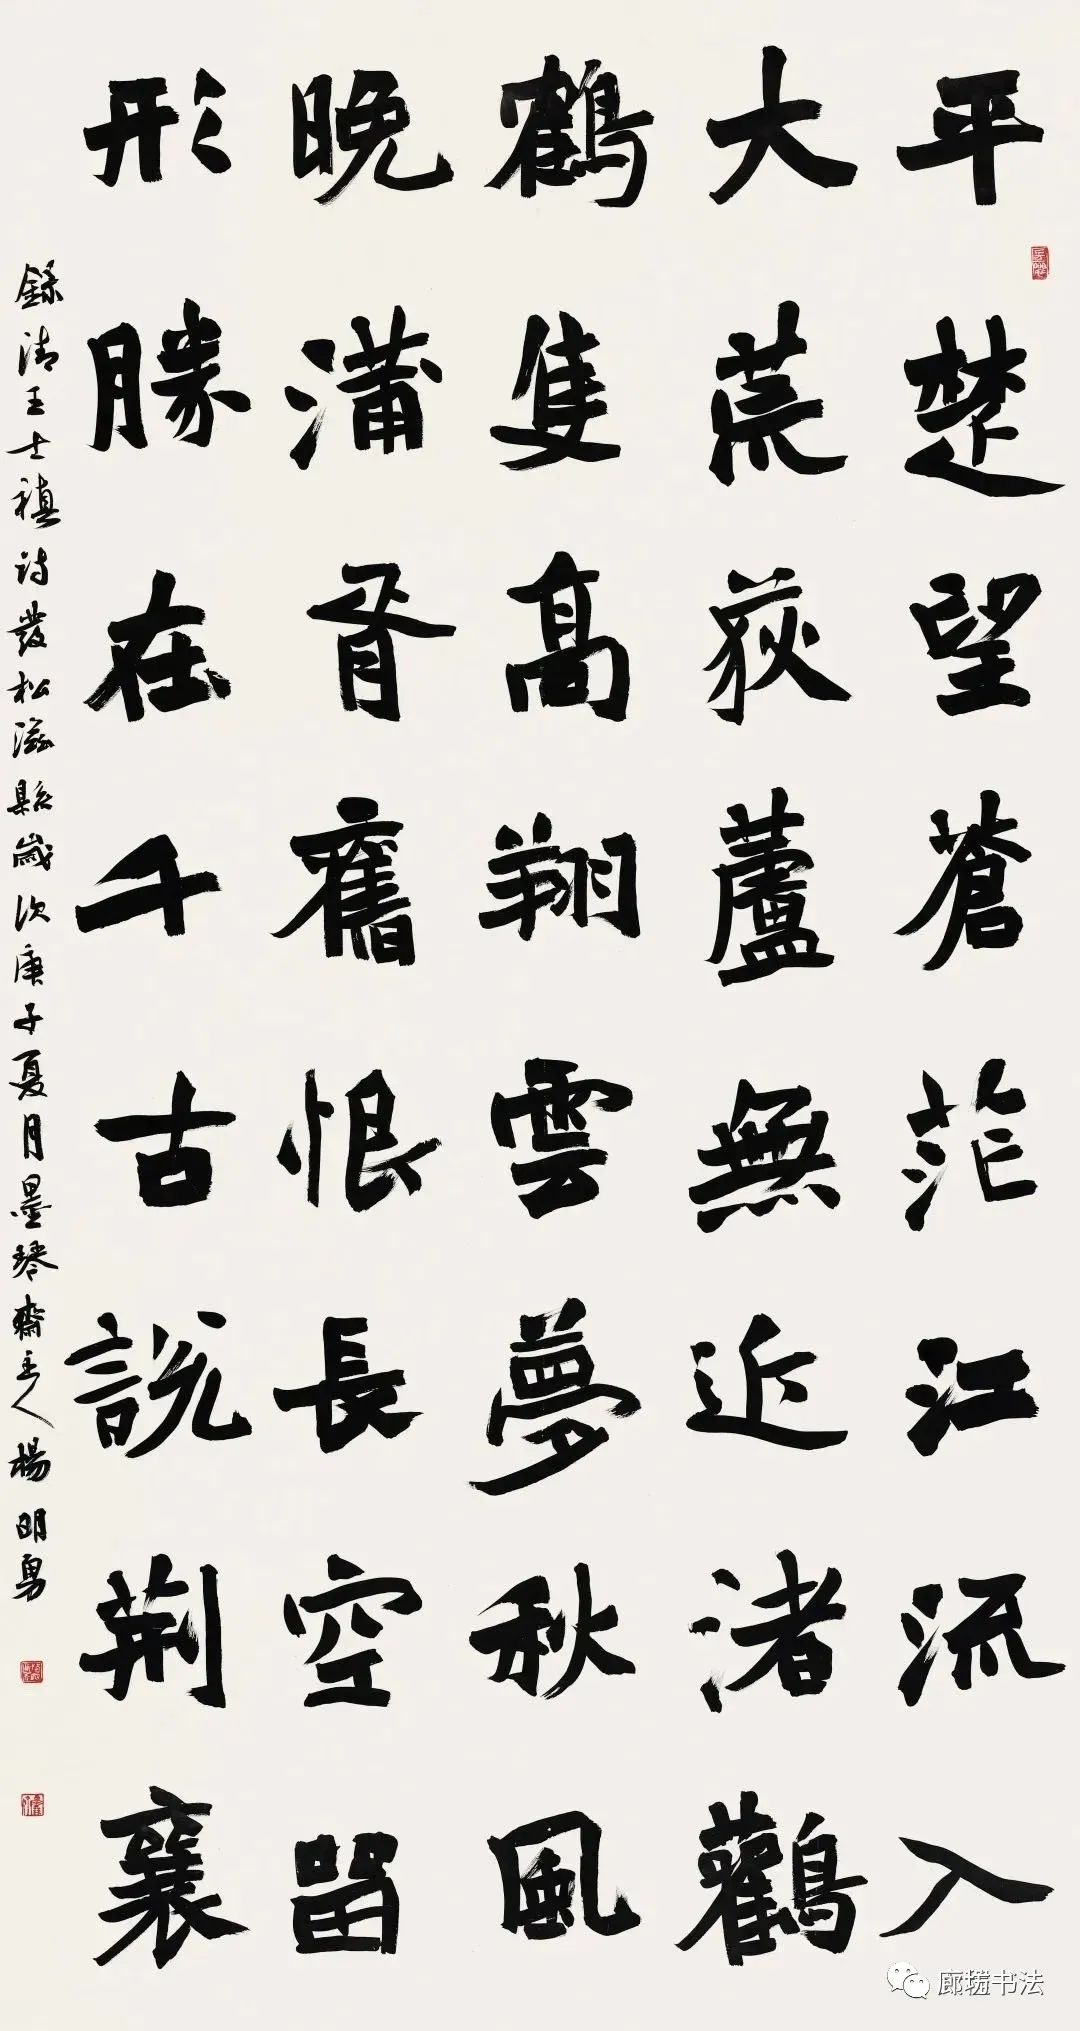 平楚望蒼茫江流入
大荒荻蘆無近渚鸛
鶴隻高翔雲夢秋風
晚蒲胥舊恨長空留
形勝在千古説荆襄
錄清王士禛詩發松滋縣歲次庚子夏月墨琴齋主人楊明勇
廊墙书法